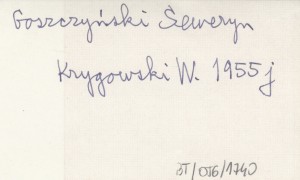 Goszczyński Seweryn
Krygowski W. 1955 j
BT/OTG/1740